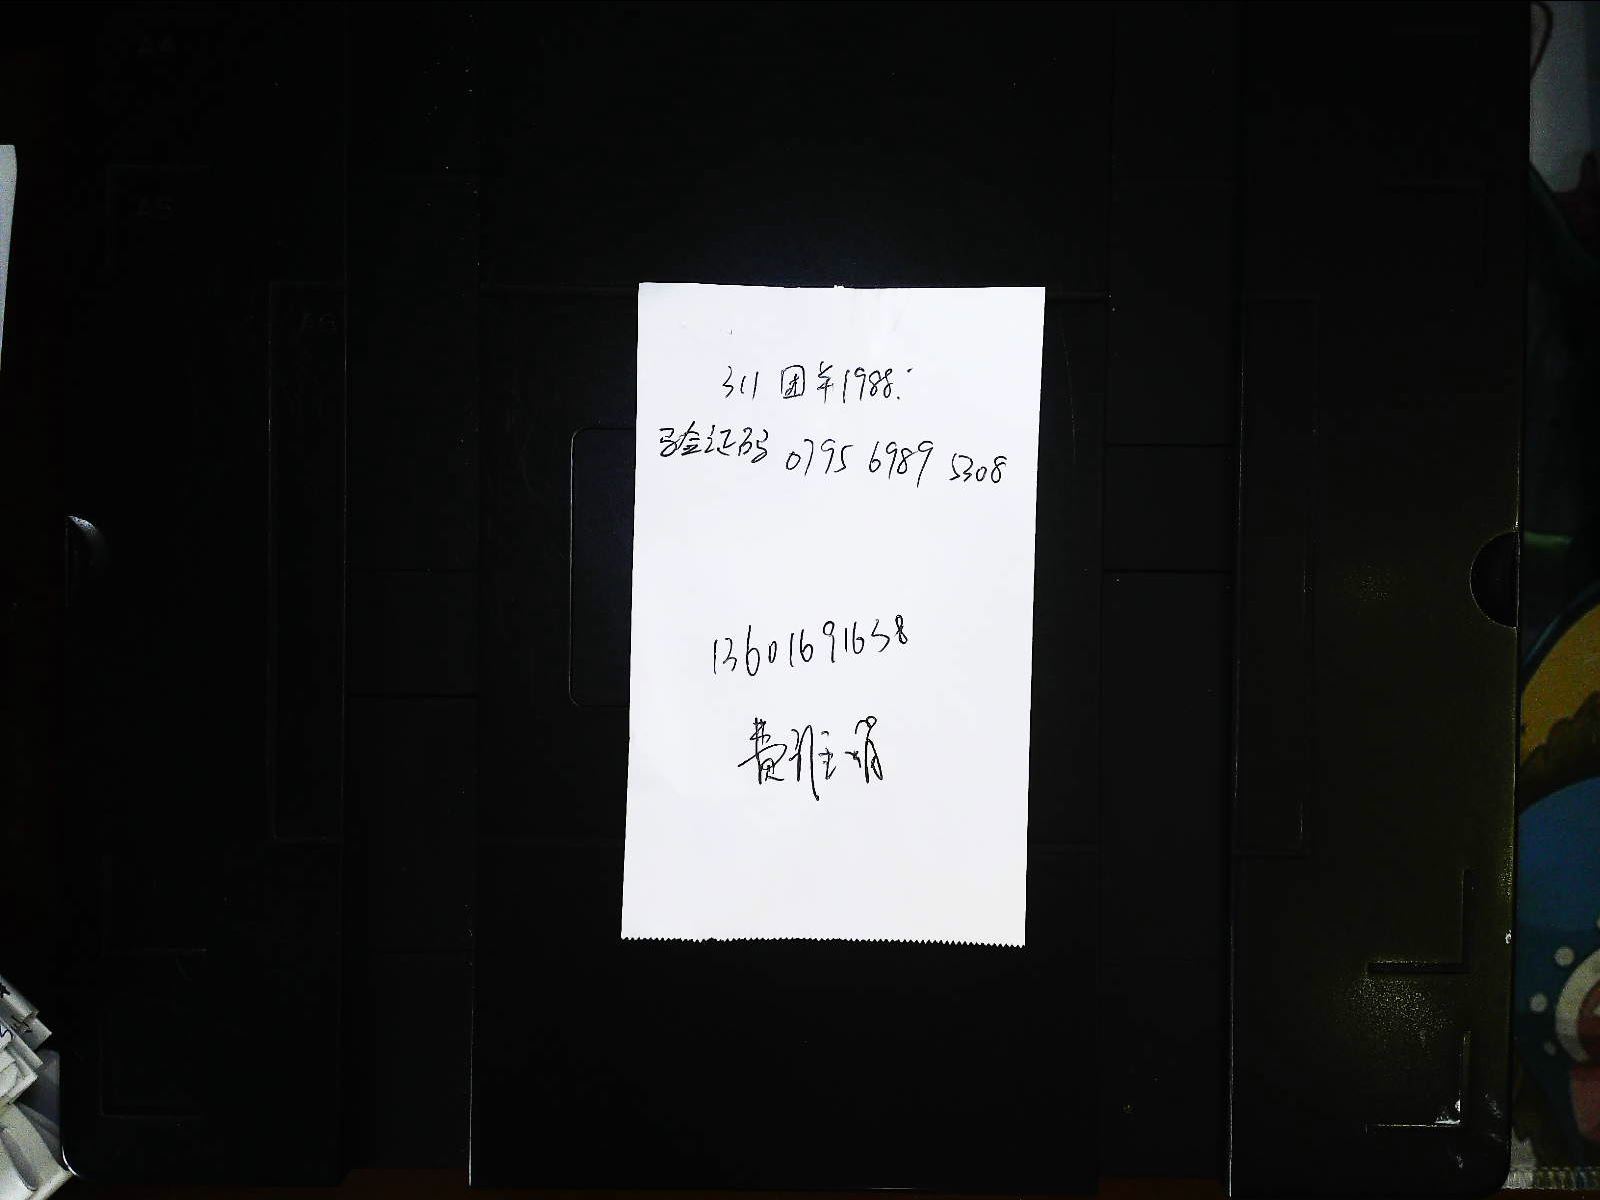 311 团单1988:
验证码 0795 6989 5308
13601691638
费雅娟